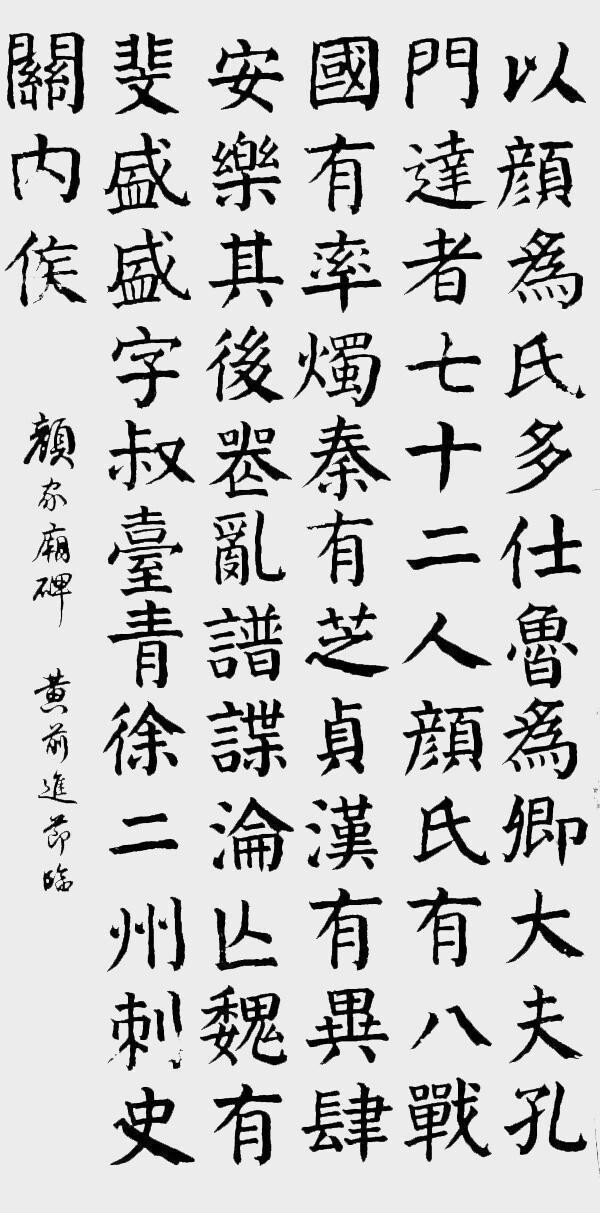 以顔爲氏多仕魯爲卿大夫孔
門達者七十二人顔氏有八戰
國有率燭秦有芝貞漢有異肆
安樂其後喪亂譜諜淪亾魏有
斐盛盛字叔臺青徐二州刺史
關内侯
顔家廟碑 黄前進節臨